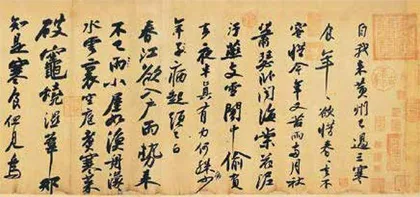 自我來黃州已過三寒
食年〻欲惜春〻去不
容惜今年又苦雨兩月秋
蕭瑟臥聞海棠花泥
汙燕支雪闇中偷負
去夜半真有力何殊少
年子病起頭已白
春江欲入戶雨勢來
不已雨小屋如漁舟濛〻
水雲裏空庖煮寒菜
破竈燒濕葦那
知是寒食但見烏